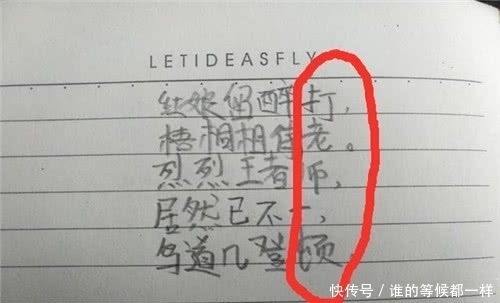 LETIDEASFLY
红娘留醉打，
梧相相信老。
烈烈王者师，
居然已不一，
鸟道几登顿
快传号/谁的等候都一样